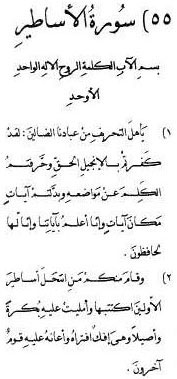 ٥٥) سورة الأساطير
بسم الآب الكلمة الروح الإله الواحد
الأوحد
١) يأهل التحريف من عبادنا الضالين: لقد
كفرتم بالإنجيل الحق وحرفتم
الكلم عن مواضعه وبدلتم آيات
مكان آيات وإنا أعلم بآياتنا وإنا لها
لحافظون.
٢) وقام منكم من انتحل أساطير
الأولين اكتتبها وأمليت عليه بكرة
وأصيلاً وهي إفك افتراه وأعانه عليه قوم
آخرون.